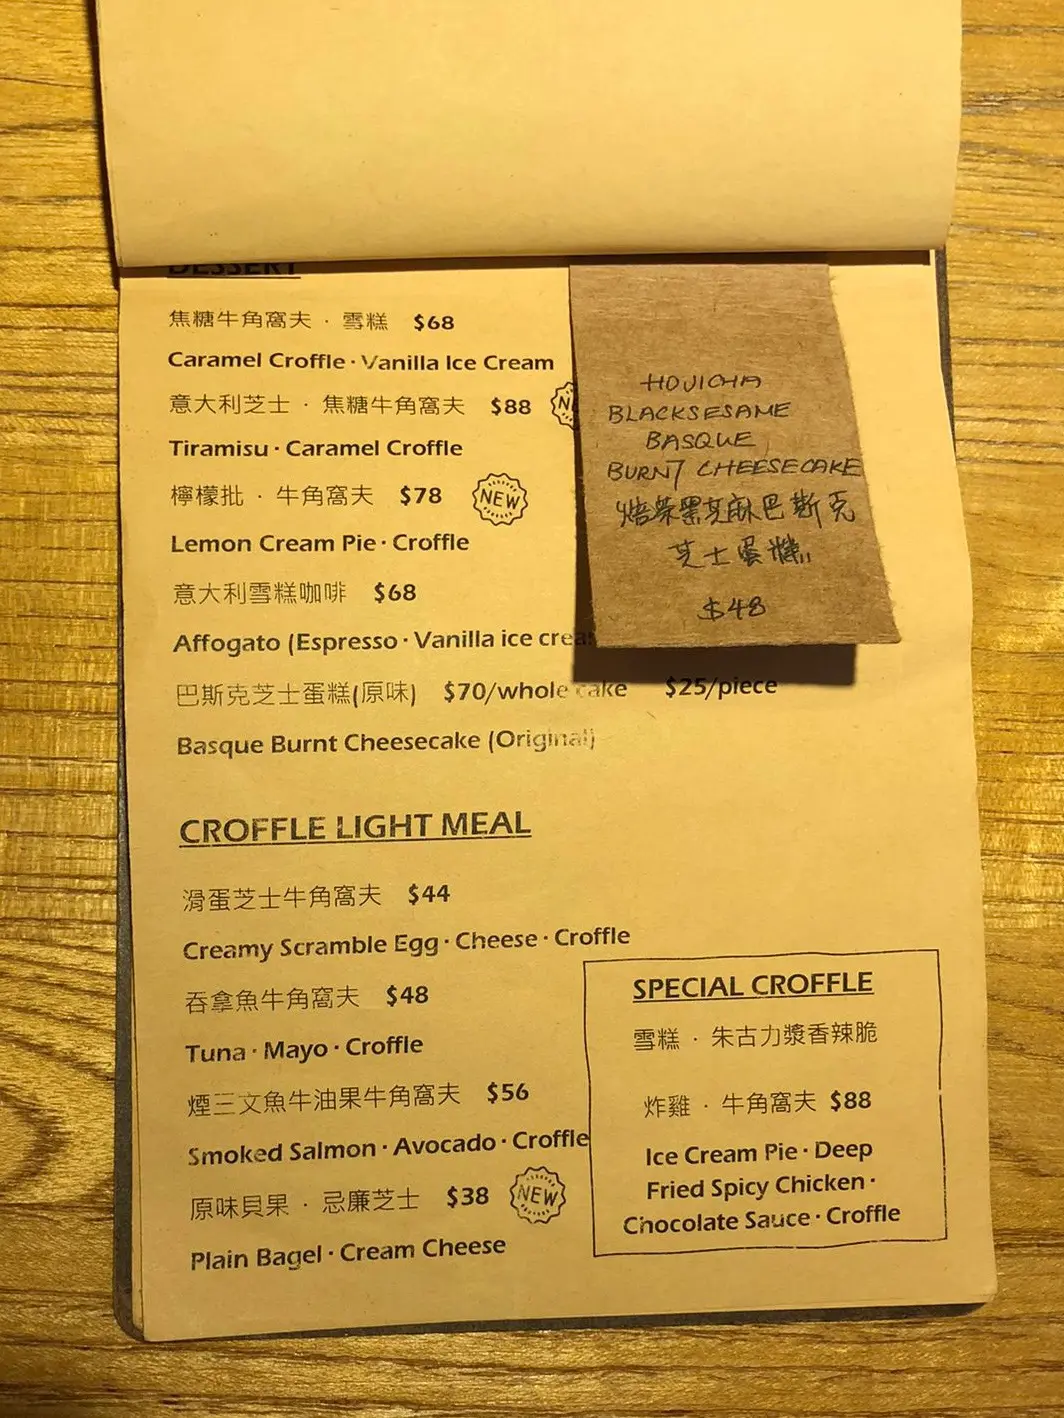 DESSERT
焦糖牛角窩夫 · 雪糕 $68
Caramel Croffle · Vanilla Ice Cream
意大利芝士 · 焦糖牛角窩夫 $88
Tiramisu · Caramel Croffle
檸檬批 · 牛角窩夫 $78 NEW
Lemon Cream Pie · Croffle
意大利雪糕咖啡 $68
Affogato (Espresso · Vanilla ice crea
巴斯克芝士蛋糕(原味) $70/whole cake $25/piece
Basque Burnt Cheesecake (Original)
HOJICHA
BLACKSESAME
BASQUE
BURNT CHEESECAKE
焙茶黑芝麻巴斯克
芝士蛋糕
$48
CROFFLE LIGHT MEAL
滑蛋芝士牛角窩夫 $44
Creamy Scramble Egg · Cheese · Croffle
吞拿魚牛角窩夫 $48
Tuna · Mayo · Croffle
煙三文魚牛油果牛角窩夫 $56
Smoked Salmon · Avocado · Croffle
原味貝果 · 忌廉芝士 $38 NEW
Plain Bagel · Cream Cheese
SPECIAL CROFFLE
雪糕 · 朱古力漿香辣脆
炸雞 · 牛角窩夫 $88
Ice Cream Pie · Deep
Fried Spicy Chicken ·
Chocolate Sauce · Croffle